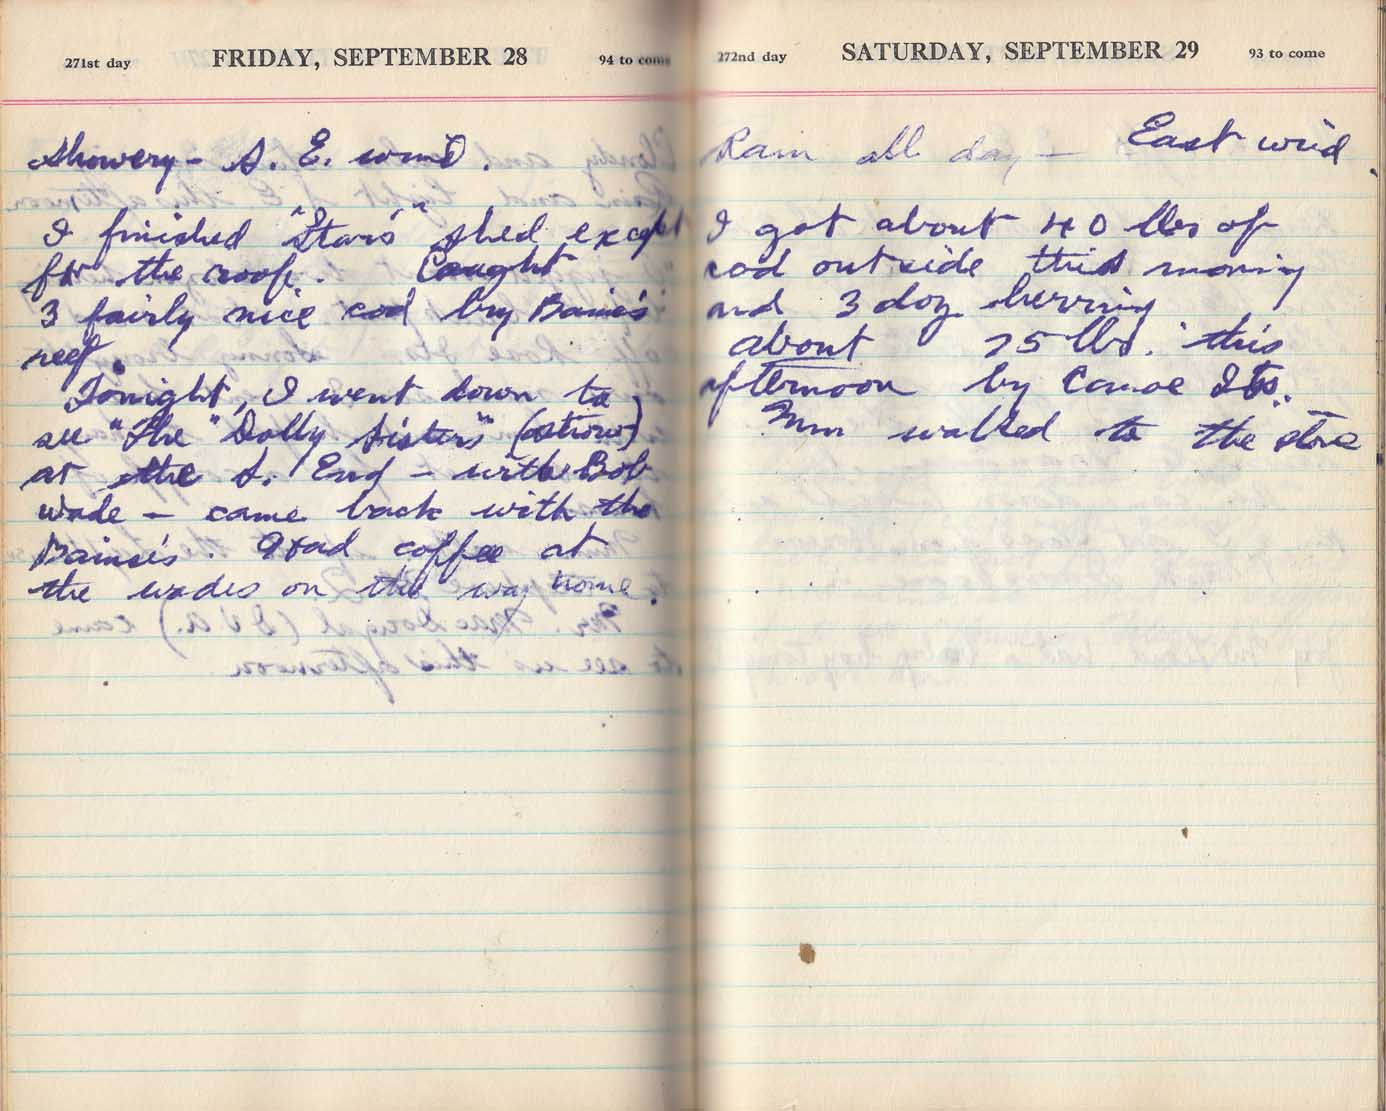 271st day FRIDAY, SEPTEMBER 28 94 to come
Showery - S. E. wind.
I finished "Stars" shed except
for the roof. Caught
3 fairly nice cod by Baines's
reef.
Tonight, I went down to
see "The "Dolly Sisters" (
at the S. End - with Bob
Wade - came back with the
Baines's. Had coffee at
the wades on the way home.
272nd day SATURDAY, SEPTEMBER 29 93 to come
Rain all day - East wind.
I got about 40 lbs of
cod outside this morning
and 3 doz herring
about 25 lbs. this
afternoon by Canoe Is.
Mum walked to the store